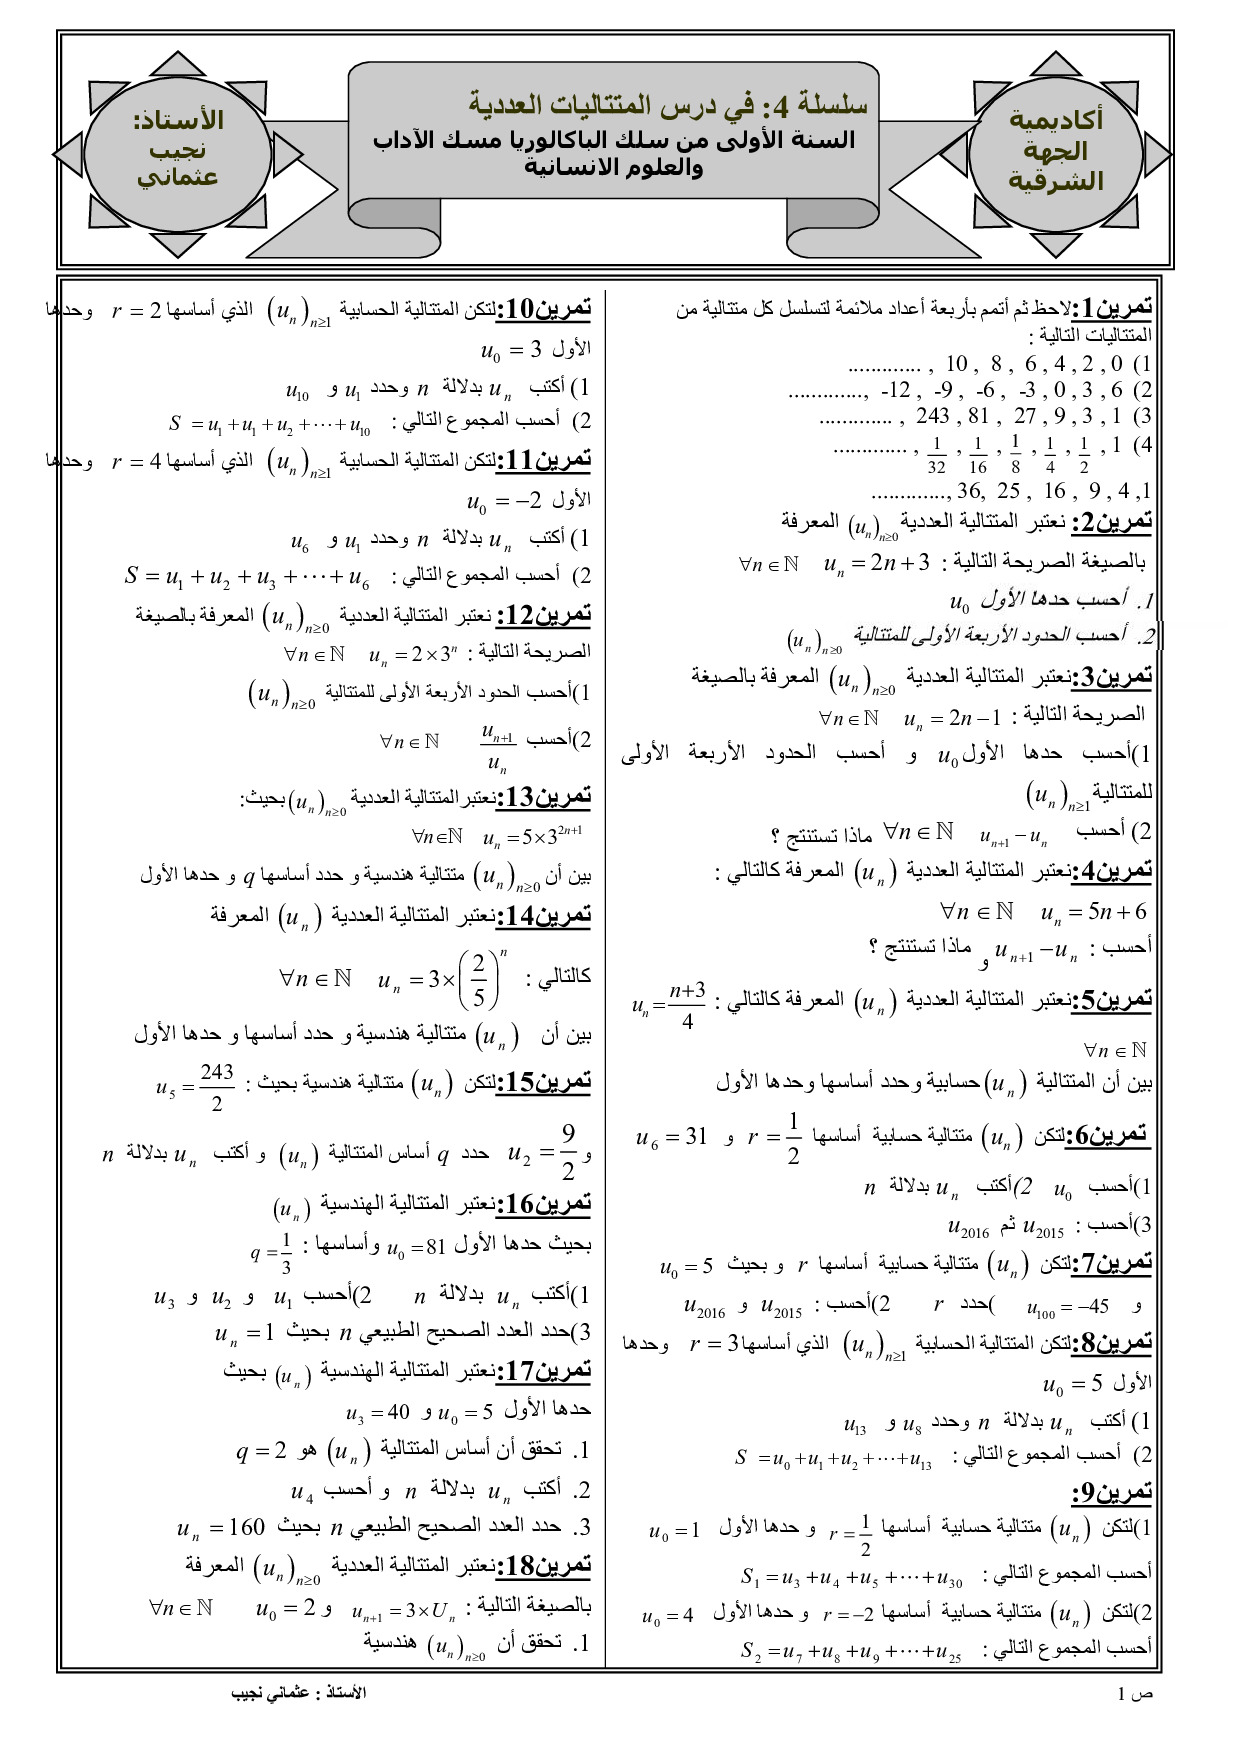 أكاديمية
الجهة
الشرقية
سلسلة 4: في درس المتتاليات العددية
السنة الأولى من سلك الباكالوريا مسك الآداب
والعلوم الانسانية
الأستاذ:
نجيب
عثماني
تمرين1:لاحظ ثم أتمم بأربعة أعداد ملائمة لتسلسل كل متتالية من
المتتاليات التالية :
1) 0 , 2 , 4 , 6 , 8 , 10 , .............
2) 6 , 3 , 0 , -3 , -6 , -9 , -12 ,.............
3) 1 , 3 , 9 , 27 , 81 , 243 , .............
4) 1 , 1/2 , 1/4 , 1/8 , 1/16 , 1/32 , .............
1, 4 , 9 , 16 , 25 ,36 ,.............
تمرين2: نعتبر المتتالية العددية (u_n)_{n≥0} المعرفة
بالصيغة الصريحة التالية : u_n = 2n + 3 ∀n ∈ ℕ
1. أحسب حدها الأول u_0
2. أحسب الحدود الأربعة الأولى للمتتالية (u_n)_{n≥0}
تمرين3:نعتبر المتتالية العددية (u_n)_{n≥0} المعرفة بالصيغة
الصريحة التالية : u_n = 2n − 1 ∀n ∈ ℕ
1)أحسب حدها الأول u_0 و أحسب الحدود الأربعة الأولى
للمتتالية (u_n)_{n≥1}
2) أحسب u_{n+1} − u_n ∀n ∈ ℕ ماذا تستنتج ؟
تمرين4:نعتبر المتتالية العددية (u_n) المعرفة كالتالي :
u_n = 5n + 6 ∀n ∈ ℕ
أحسب : u_{n+1} − u_n و ماذا تستنتج ؟
تمرين5:نعتبر المتتالية العددية (u_n) المعرفة كالتالي : u_n = (n+3)/4
∀n ∈ ℕ
بين أن المتتالية (u_n) حسابية وحدد أساسها وحدها الأول
تمرين6:لتكن (u_n) متتالية حسابية أساسها r = 1/2 و u_6 = 31
1)أحسب u_0 2)أكتب u_n بدلالة n
3)أحسب : u_2015 ثم u_2016
تمرين7:لتكن (u_n) متتالية حسابية أساسها r و بحيث u_0 = 5
و u_100 = −45 )حدد r 2)أحسب : u_2015 و u_2016
تمرين8:لتكن المتتالية الحسابية (u_n)_{n≥1} الذي أساسها r = 3 وحدها
الأول u_0 = 5
1) أكتب u_n بدلالة n وحدد u_8 و u_13
2) أحسب المجموع التالي : S = u_0 + u_1 + u_2 + ⋯ + u_13
تمرين9:
1)لتكن (u_n) متتالية حسابية أساسها r = 1/2 و حدها الأول u_0 = 1
أحسب المجموع التالي : S_1 = u_3 + u_4 + u_5 + ⋯ + u_30
2)لتكن (u_n) متتالية حسابية أساسها r = −2 و حدها الأول u_0 = 4
أحسب المجموع التالي : S_2 = u_7 + u_8 + u_9 + ⋯ + u_25
تمرين10:لتكن المتتالية الحسابية (u_n)_{n≥1} الذي أساسها r = 2 وحدها
الأول u_0 = 3
1) أكتب u_n بدلالة n وحدد u_1 و u_10
2) أحسب المجموع التالي : S = u_1 + u_1 + u_2 + ⋯ + u_10
تمرين11:لتكن المتتالية الحسابية (u_n)_{n≥1} الذي أساسها r = 4 وحدها
الأول u_0 = −2
1) أكتب u_n بدلالة n وحدد u_1 و u_6
2) أحسب المجموع التالي : S = u_1 + u_2 + u_3 + ⋯ + u_6
تمرين12: نعتبر المتتالية العددية (u_n)_{n≥0} المعرفة بالصيغة
الصريحة التالية : u_n = 2×3^n ∀n ∈ ℕ
1)أحسب الحدود الأربعة الأولى للمتتالية (u_n)_{n≥0}
2)أحسب u_{n+1}/u_n ∀n ∈ ℕ
تمرين13:نعتبرالمتتالية العددية (u_n)_{n≥0} بحيث:
u_n = 5×3^{2n+1} ∀n∈ℕ
بين أن (u_n)_{n≥0} متتالية هندسية و حدد أساسها q و حدها الأول
تمرين14:نعتبر المتتالية العددية (u_n) المعرفة
كالتالي : u_n = 3×(2/5)^n ∀n ∈ ℕ
بين أن (u_n) متتالية هندسية و حدد أساسها و حدها الأول
تمرين15:لتكن (u_n) متتالية هندسية بحيث : u_5 = 243/2
و u_2 = 9/2 حدد q أساس المتتالية (u_n) و أكتب u_n بدلالة n
تمرين16:نعتبر المتتالية الهندسية (u_n)
بحيث حدها الأول u_0 = 81 وأساسها : q = 1/3
1)أكتب u_n بدلالة n 2)أحسب u_1 و u_2 و u_3
3)حدد العدد الصحيح الطبيعي n بحيث u_n = 1
تمرين17:نعتبر المتتالية الهندسية (u_n) بحيث
حدها الأول u_0 = 5 و u_3 = 40
1. تحقق أن أساس المتتالية (u_n) هو q = 2
2. أكتب u_n بدلالة n و أحسب u_4
3. حدد العدد الصحيح الطبيعي n بحيث u_n = 160
تمرين18:نعتبر المتتالية العددية (u_n)_{n≥0} المعرفة
بالصيغة التالية : u_{n+1} = 3×U_n و u_0 = 2 ∀n ∈ ℕ
1. تحقق أن (u_n)_{n≥0} هندسية
ص 1
الأستاذ : عثماني نجيب